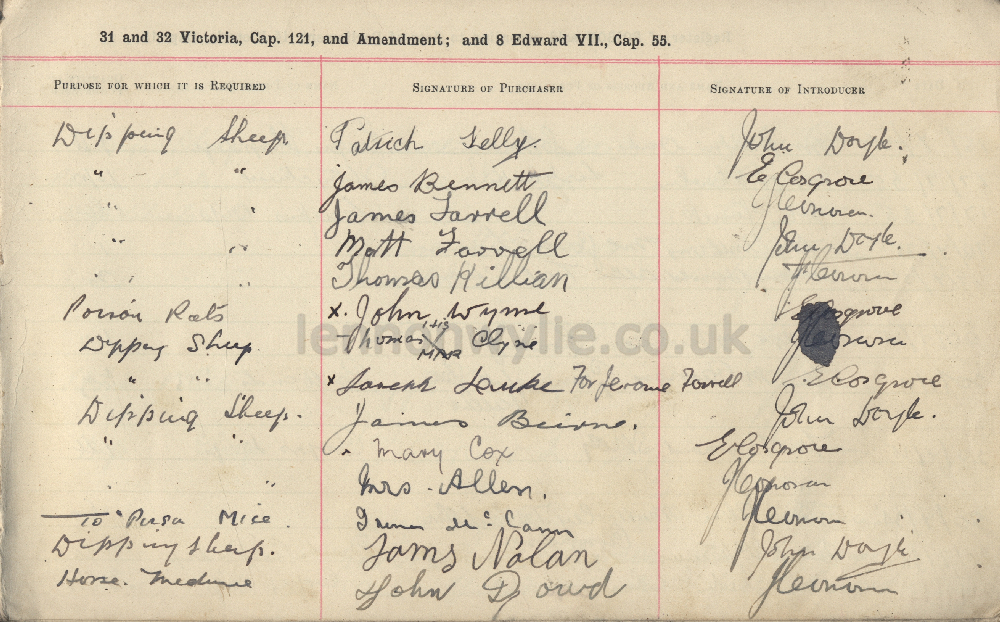 31 and 32 Victoria, Cap. 121, and Amendment; and 8 Edward VII., Cap. 55.
PURPOSE FOR WHICH IT IS REQUIRED SIGNATURE OF PURCHASER SIGNATURE OF INTRODUCER
Dipping Sheep Patrick John Doyle.
" " James Bennett E Cosgrove
" " James Farrell
" " Matt Farrell John Doyle.
" " Thomas Killian
Poison Rats x. John Wynne Cosgrove
Dipping Sheep Thomas His Mark Clyne
" " x Joseph For Jerome Farrell E Cosgrove
Dipping Sheep. James Beirne. John Doyle.
" " Mary Cox E Cosgrove
" " Mrs. Allen.
To Mice. McCann
Dipping Sheep. James Nolan John Doyle
Horse Medicine John Dowd
lennonwylie.co.uk